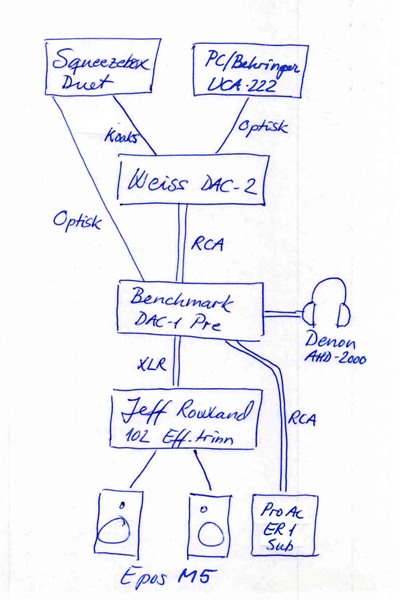 Squeezebox
Duet
PC/Behringer
UCA-222
Koaks
Optisk
Weiss DAC-2
Optisk
RCA
Benchmark
DAC-1 Pre
Denon
AHD-2000
XLR
RCA
Jeff Rowland
102 Eff.trinn
ProAc
ER1
Sub
Epos M5